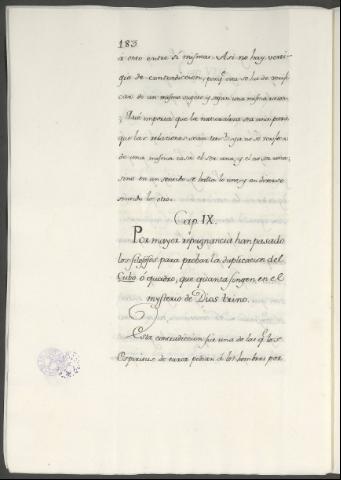 183
á otro entre sí mismas. Asi no hay vesti-
gio de contradiccion, porq.^e esta se ha de verifi-
car de un mismo sugeto y segun una misma razon
Que importa que la naturaleza sea una para
que las relaciones sean tres? ya no se verifica
de una misma cosa el ser una, y el no ser una,
sino en un sentido se halla lo uno, y en diverso
sentido lo otro.
Cap. IX.
Por mayor repugnancia han pasado
los filosofos para probar la duplicacion del
Cubo ó quadro, que quanta fingen en el
mysterio de Dios trino.
Esta contradiccion fue una de las q.^e los
Espiritus de error pedian á los hombres por